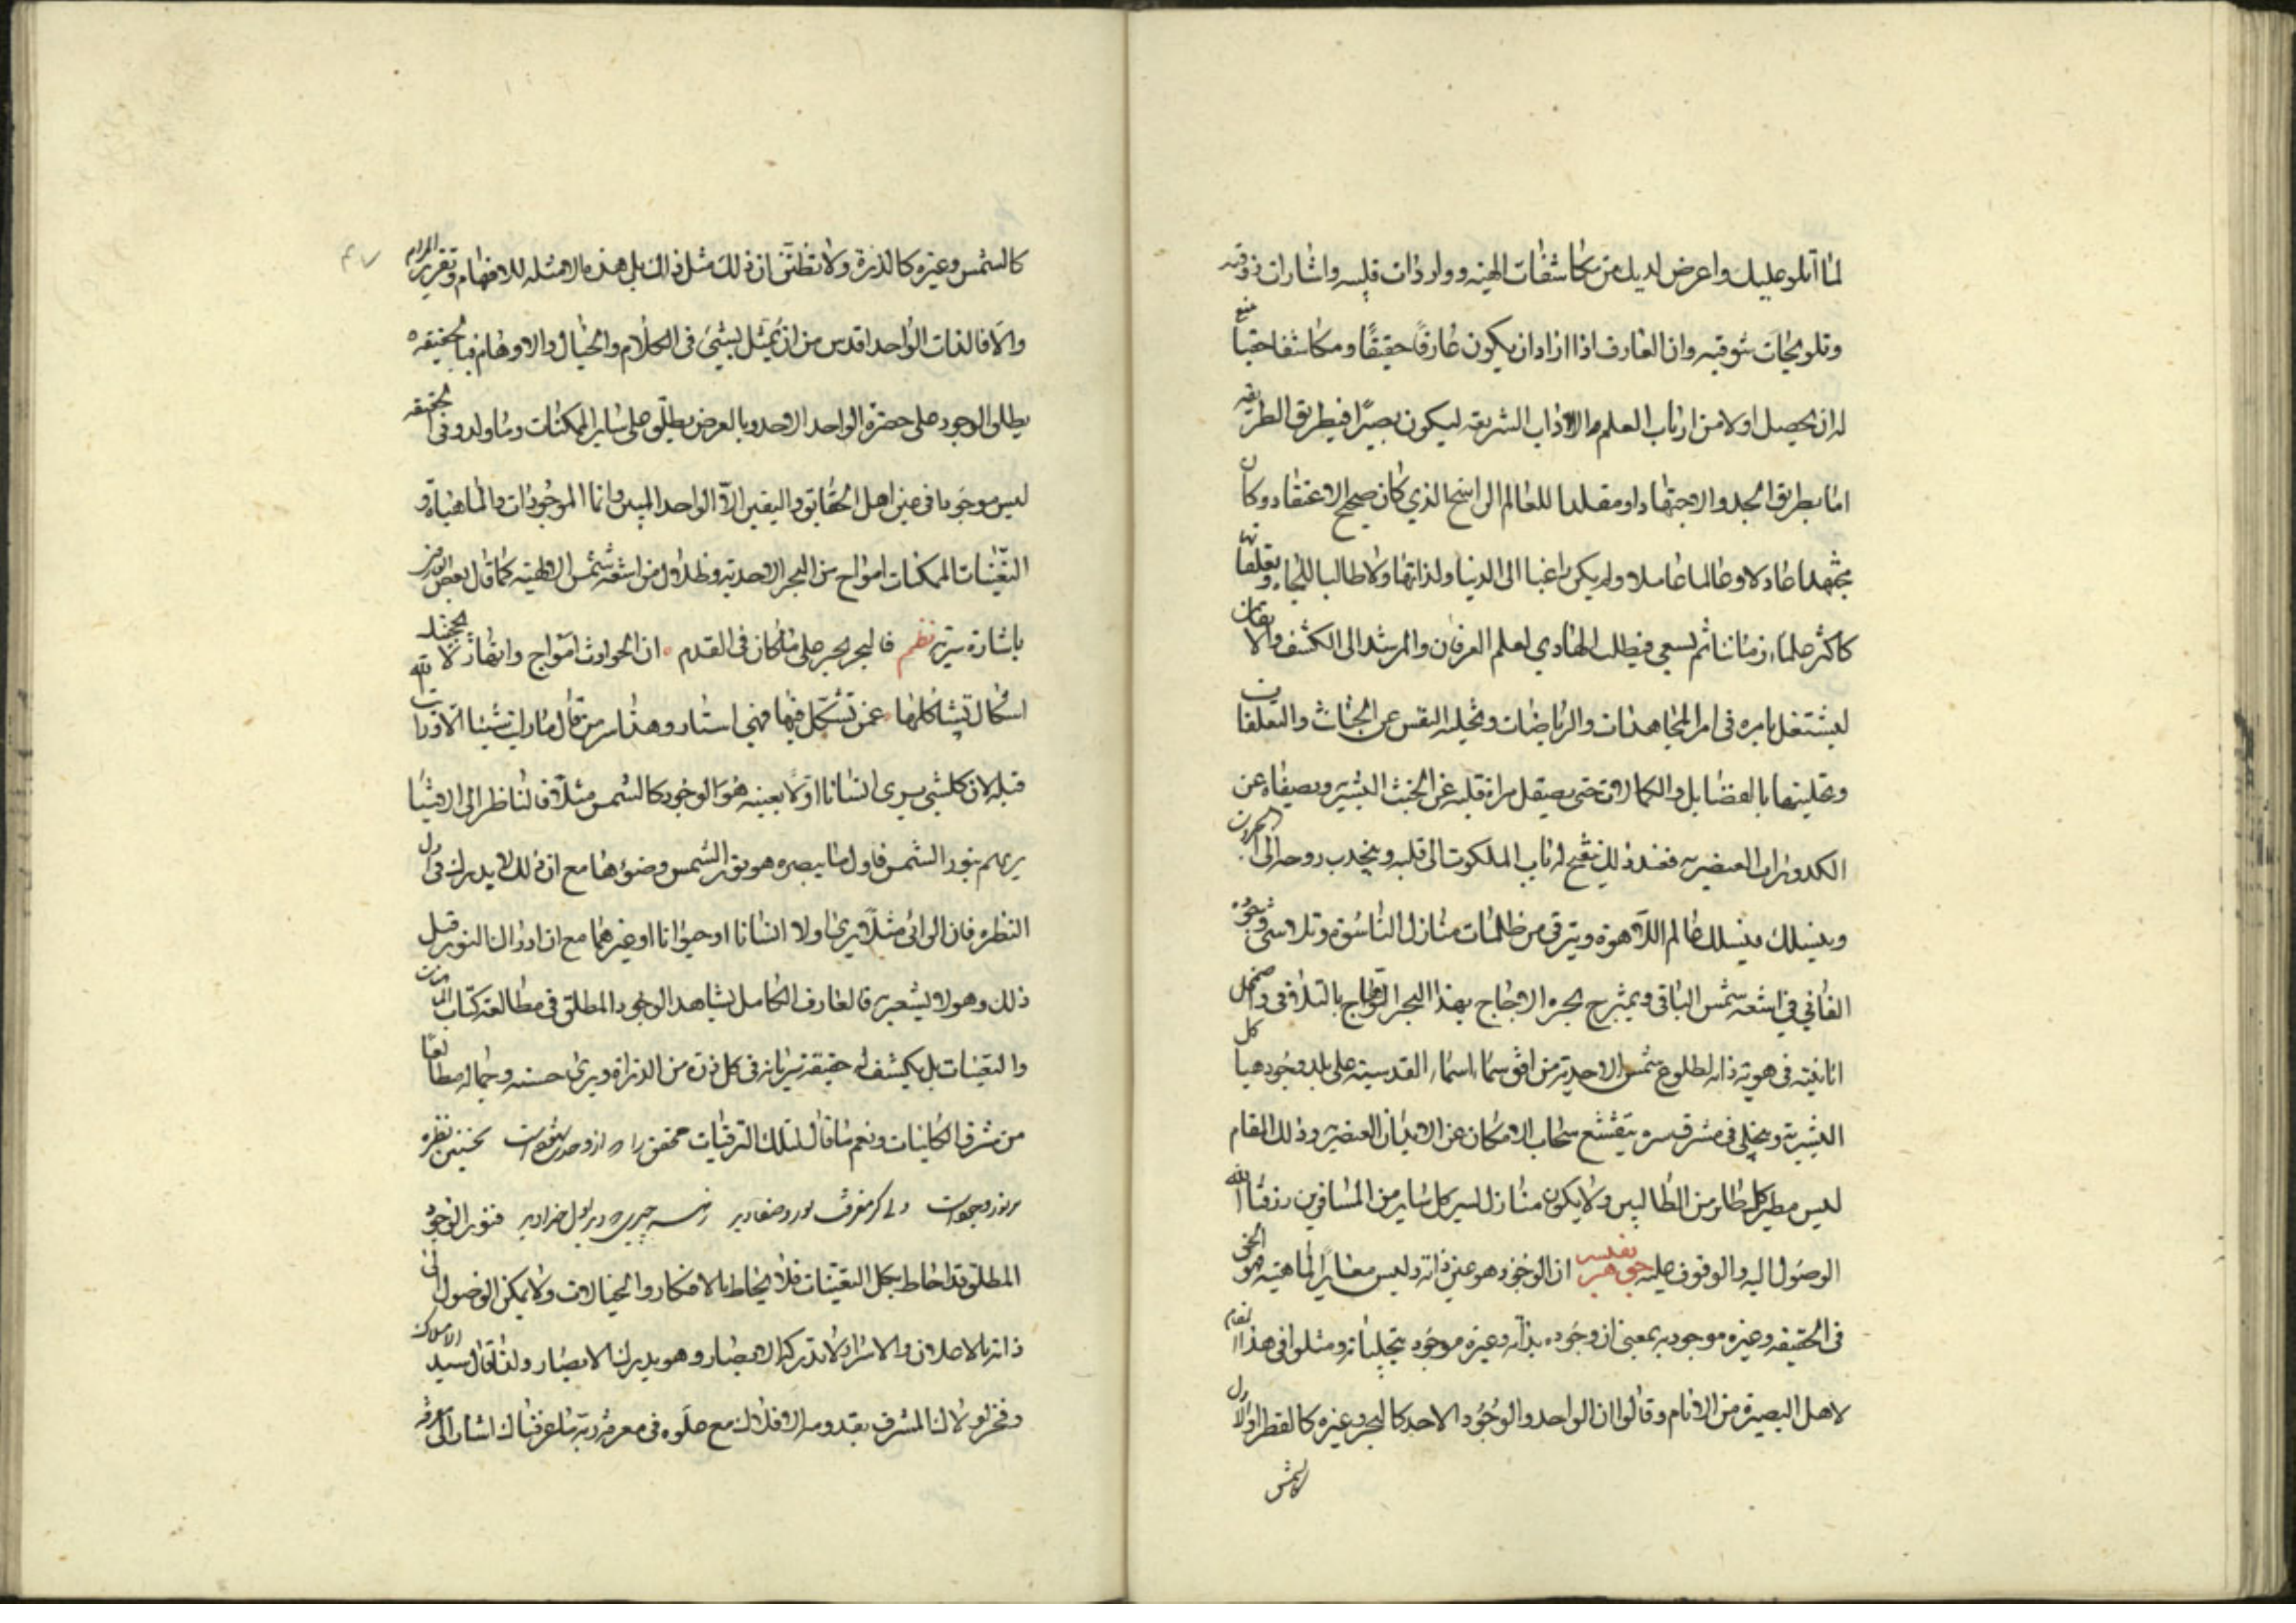 لما اتلو عليك واعرض لديك من مكاشفات الهيه وواردات قلبيه واشارات ذوقيه
وتلويحات شوقيه وان العارف اذا اراد ان يكون عارفاً حقيقيًا ومكاشفا حقيا ينبغي
له ان يحصل اولا من ارباب العلم والاداب الشريعه ليكون بصيرًا في طريق الطريقه
اما بطريق الجد والاجتهاد او مقلدا للعالم الراسخ الذي كان صحيح الاعتقاد وكان
مجتهدا عادلا وعالما عاملا ولم يكن راغبا الى الدنيا ولذاتها ولا طالبا للجاه وتعلقاتها
كاكثر علماء زماننا ثم يسعى فيطلب الهادي لعلم العرفان والمرشد الى الكشف والايقان
ليشتغل بامره في امر المجاهدات والرياضات وتخليه النفس عن الخباث والتعلقات
وتحليتها بالفضايل والكمالات حتى يصيقل مراة قلبه عن الخبث البشيريه ويصيفاه عن
الكدورات العنصريه فعند ذلك ينفتح له باب الملكوت الى قلبه وينجذب روحه الى الجبروت
وينسلك مسلك عالم اللاهوة ويترقى من ظلمات منازل الناسوة وتلاشى وجوده
الفاني في اشعه شمس الباقي ويمتزج بحره الاجاج بهذا البحر المواج بالتلاقي واضمحل
انانيته في هوية ذاته لطلوع شمس الاحدية من افق سماء اسماء القدسيه على هياكل
البشيريه ويتجلى في مشرق سره يتقشع سحاب الامكان عن الابدان العنصريه وذلك المقام
ليس مطير كل طاير من الطالبين ولا يكون منازل لسير كل ساير من المسافرين رزقنا الله
الوصول اليه والوقوف عليه جوهر نفيس ان الوجود هو عين ذاته وليس مغايراً لماهيته فهو الحق
في الحقيقه وغيره موجود به بمعنى ان وجوده بذاته وغيره موجود بتجلياته ومثلوا في هذا المقام
لاهل البصيرة من الانام وقالوا ان الواحد والوجود الاحد كالبحر وغيره كالقطر او الاول
كالشمس
كالشمس وغيره كالذرة ولا تظنن ان ذلك مثل ذلك بل هذه الامثله للافهام وتقرير المرام
والا فالذات الواحد اقدس من ان يمثل بشيئ في الكلام والخيال والاوهام فبالحقيقه
يطلق الوجود على حضرة الواحد الاحد وبالعرض يطلق على ساير الممكنات وما ولد وفي الحقيقه
ليس موجودا في عين اهل الحقايق واليقين الا الواحد المبين وانما الموجودات والماهياة و
التعينات الممكنات امواج من البحر الاحديه وظلال من اشعه شمس الالهيه كما قال بعض
باشارة سريه نظم فالبحر بحر على ما كان في القدم ان الحوادث امواج وانهار لا يحجبنك
اشكال تشاكلها عمن تشكل فيها فهي استار وهذا سر من قال ما رايت شيئا الا ورايت الله
قبله لان كلشي يرى انسانا اولا بعينه هو الوجود كالشمس مثلاً فالناظر الى الاشيا
يريهم بنور الشمس فاول ما يبصره هو نور الشمس وضوءها مع ان ذلك لا يدرك في اول
النظره فان الرائي مثلاً يرى اولا انسانا او حيوانا او غيرهما مع ان ادراك النور قبل
ذلك وهو لا يشعر به فالعارف الكامل يشاهد الوجود المطلق في مطالعة كتاب
والتعينات بل يكشف له حقيقة سريانه في كل ذرة من الذراة ويرى حسنه وجماله مطالعًا
من مشرق الكاينات ونعم ما قال لتلك الترقيات محقق را كه از وحدت شهودست نخستين نظره
بر نور وجودست دلى كز معرفت نور وصفا ديد ز هر چيزى كه ديد اول خدا ديد فنور الوجود
المطلق قد احاط بكل التعينات فلا يحاط بالافكار والخيالات ولا يمكن الوصول الى
ذاته بالاعلان والاسرار لا تدركه الابصار وهو يدرك الابصار ولذا قال سيد
وفخر لولاك المشرف بقدومه الافلاك مع علوه في معرفة ربه ما عرفناك اشار الى